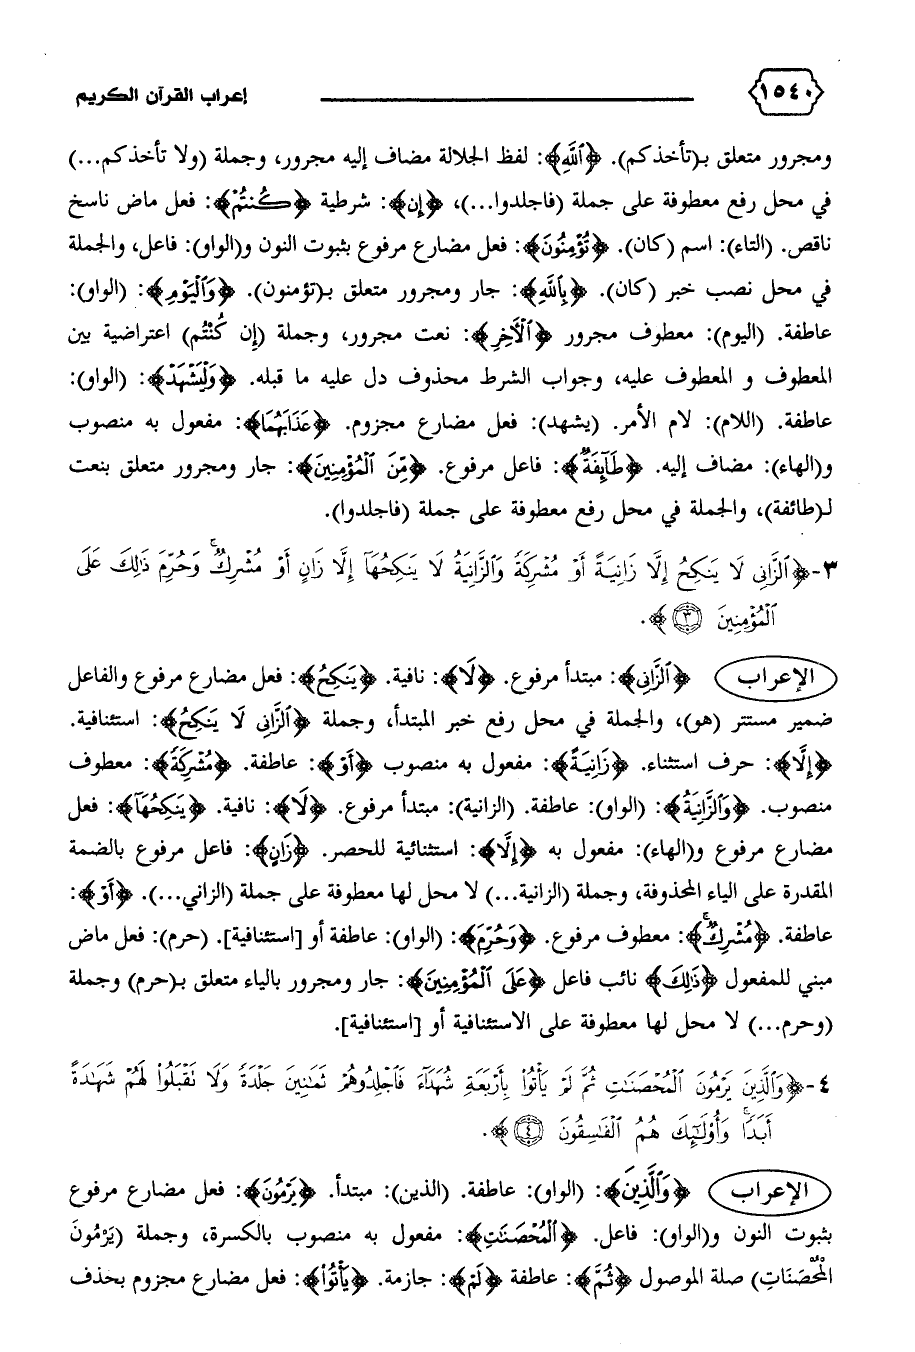 ١٥٤٠ إعراب القرآن الكريم
ومجرور متعلق بـ(تأخذكم). ﴿ٱللَّهِ﴾: لفظ الجلالة مضاف إليه مجرور، وجملة (ولا تأخذكم...)
في محل رفع معطوفة على جملة (فاجلدوا...)، ﴿إِن﴾: شرطية ﴿كُنتُمْ﴾: فعل ماض ناسخ
ناقص. (التاء): اسم (كان). ﴿تُؤْمِنُونَ﴾: فعل مضارع مرفوع بثبوت النون و(الواو): فاعل، والجملة
في محل نصب خبر (كان). ﴿بِٱللَّهِ﴾: جار ومجرور متعلق بـ(تؤمنون). ﴿وَٱلْيَوْمِ﴾: (الواو):
عاطفة. (اليوم): معطوف مجرور ﴿ٱلْأَخِرِ﴾: نعت مجرور، وجملة (إِن كُنْتُم) اعتراضية بين
المعطوف و المعطوف عليه، وجواب الشرط محذوف دل عليه ما قبله. ﴿وَلْيَشْهَدْ﴾: (الواو):
عاطفة. (اللام): لام الأمر. (يشهد): فعل مضارع مجزوم. ﴿عَذَابَهُمَا﴾: مفعول به منصوب
و(الهاء): مضاف إليه. ﴿طَآئِفَةٌ﴾: فاعل مرفوع. ﴿مِّنَ ٱلْمُؤْمِنِينَ﴾: جار ومجرور متعلق بنعت
لـ(طائفة)، والجملة في محل رفع معطوفة على جملة (فاجلدوا).
٣-﴿ٱلزَّانِى لَا يَنكِحُ إِلَّا زَانِيَةً أَوْ مُشْرِكَةً وَٱلزَّانِيَةُ لَا يَنكِحُهَآ إِلَّا زَانٍ أَوْ مُشْرِكٌ ۚ وَحُرِّمَ ذَٰلِكَ عَلَى
ٱلْمُؤْمِنِينَ ٣﴾.
الإعراب ﴿ٱلزَّانِى﴾: مبتدأ مرفوع. ﴿لَا﴾: نافية. ﴿يَنكِحُ﴾: فعل مضارع مرفوع والفاعل
ضمير مستتر (هو)، والجملة في محل رفع خبر المبتدأ، وجملة ﴿ٱلزَّانِى لَا يَنكِحُ﴾: استئنافية.
﴿إِلَّا﴾: حرف استثناء. ﴿زَانِيَةً﴾: مفعول به منصوب ﴿أَوْ﴾: عاطفة. ﴿مُشْرِكَةً﴾: معطوف
منصوب. ﴿وَٱلزَّانِيَةُ﴾: (الواو): عاطفة. (الزانية): مبتدأ مرفوع. ﴿لَا﴾: نافية. ﴿يَنكِحُهَآ﴾: فعل
مضارع مرفوع و(الهاء): مفعول به ﴿إِلَّا﴾: استثنائية للحصر. ﴿زَانٍ﴾: فاعل مرفوع بالضمة
المقدرة على الياء المحذوفة، وجملة (الزانية...) لا محل لها معطوفة على جملة (الزاني...). ﴿أَوْ﴾:
عاطفة. ﴿مُشْرِكٌ ۚ﴾: معطوف مرفوع. ﴿وَحُرِّمَ﴾: (الواو): عاطفة أو [استئنافية]. (حرم): فعل ماض
مبني للمفعول ﴿ذَٰلِكَ﴾ نائب فاعل ﴿عَلَى ٱلْمُؤْمِنِينَ﴾: جار ومجرور بالياء متعلق بـ(حرم) وجملة
(وحرم...) لا محل لها معطوفة على الاستئنافية أو [استئنافية].
٤-﴿وَٱلَّذِينَ يَرْمُونَ ٱلْمُحْصَنَٰتِ ثُمَّ لَمْ يَأْتُوا۟ بِأَرْبَعَةِ شُهَدَآءَ فَٱجْلِدُوهُمْ ثَمَٰنِينَ جَلْدَةً وَلَا تَقْبَلُوا۟ لَهُمْ شَهَٰدَةً
أَبَدًا ۚ وَأُو۟لَٰٓئِكَ هُمُ ٱلْفَٰسِقُونَ ٤﴾.
الإعراب ﴿وَٱلَّذِينَ﴾: (الواو): عاطفة. (الذين): مبتدأ. ﴿يَرْمُونَ﴾: فعل مضارع مرفوع
بثبوت النون و(الواو): فاعل. ﴿ٱلْمُحْصَنَٰتِ﴾: مفعول به منصوب بالكسرة، وجملة (يَرْمُونَ
المُحْصَنَاتِ) صلة الموصول ﴿ثُمَّ﴾: عاطفة ﴿لَمْ﴾: جازمة. ﴿يَأْتُوا۟﴾: فعل مضارع مجزوم بحذف